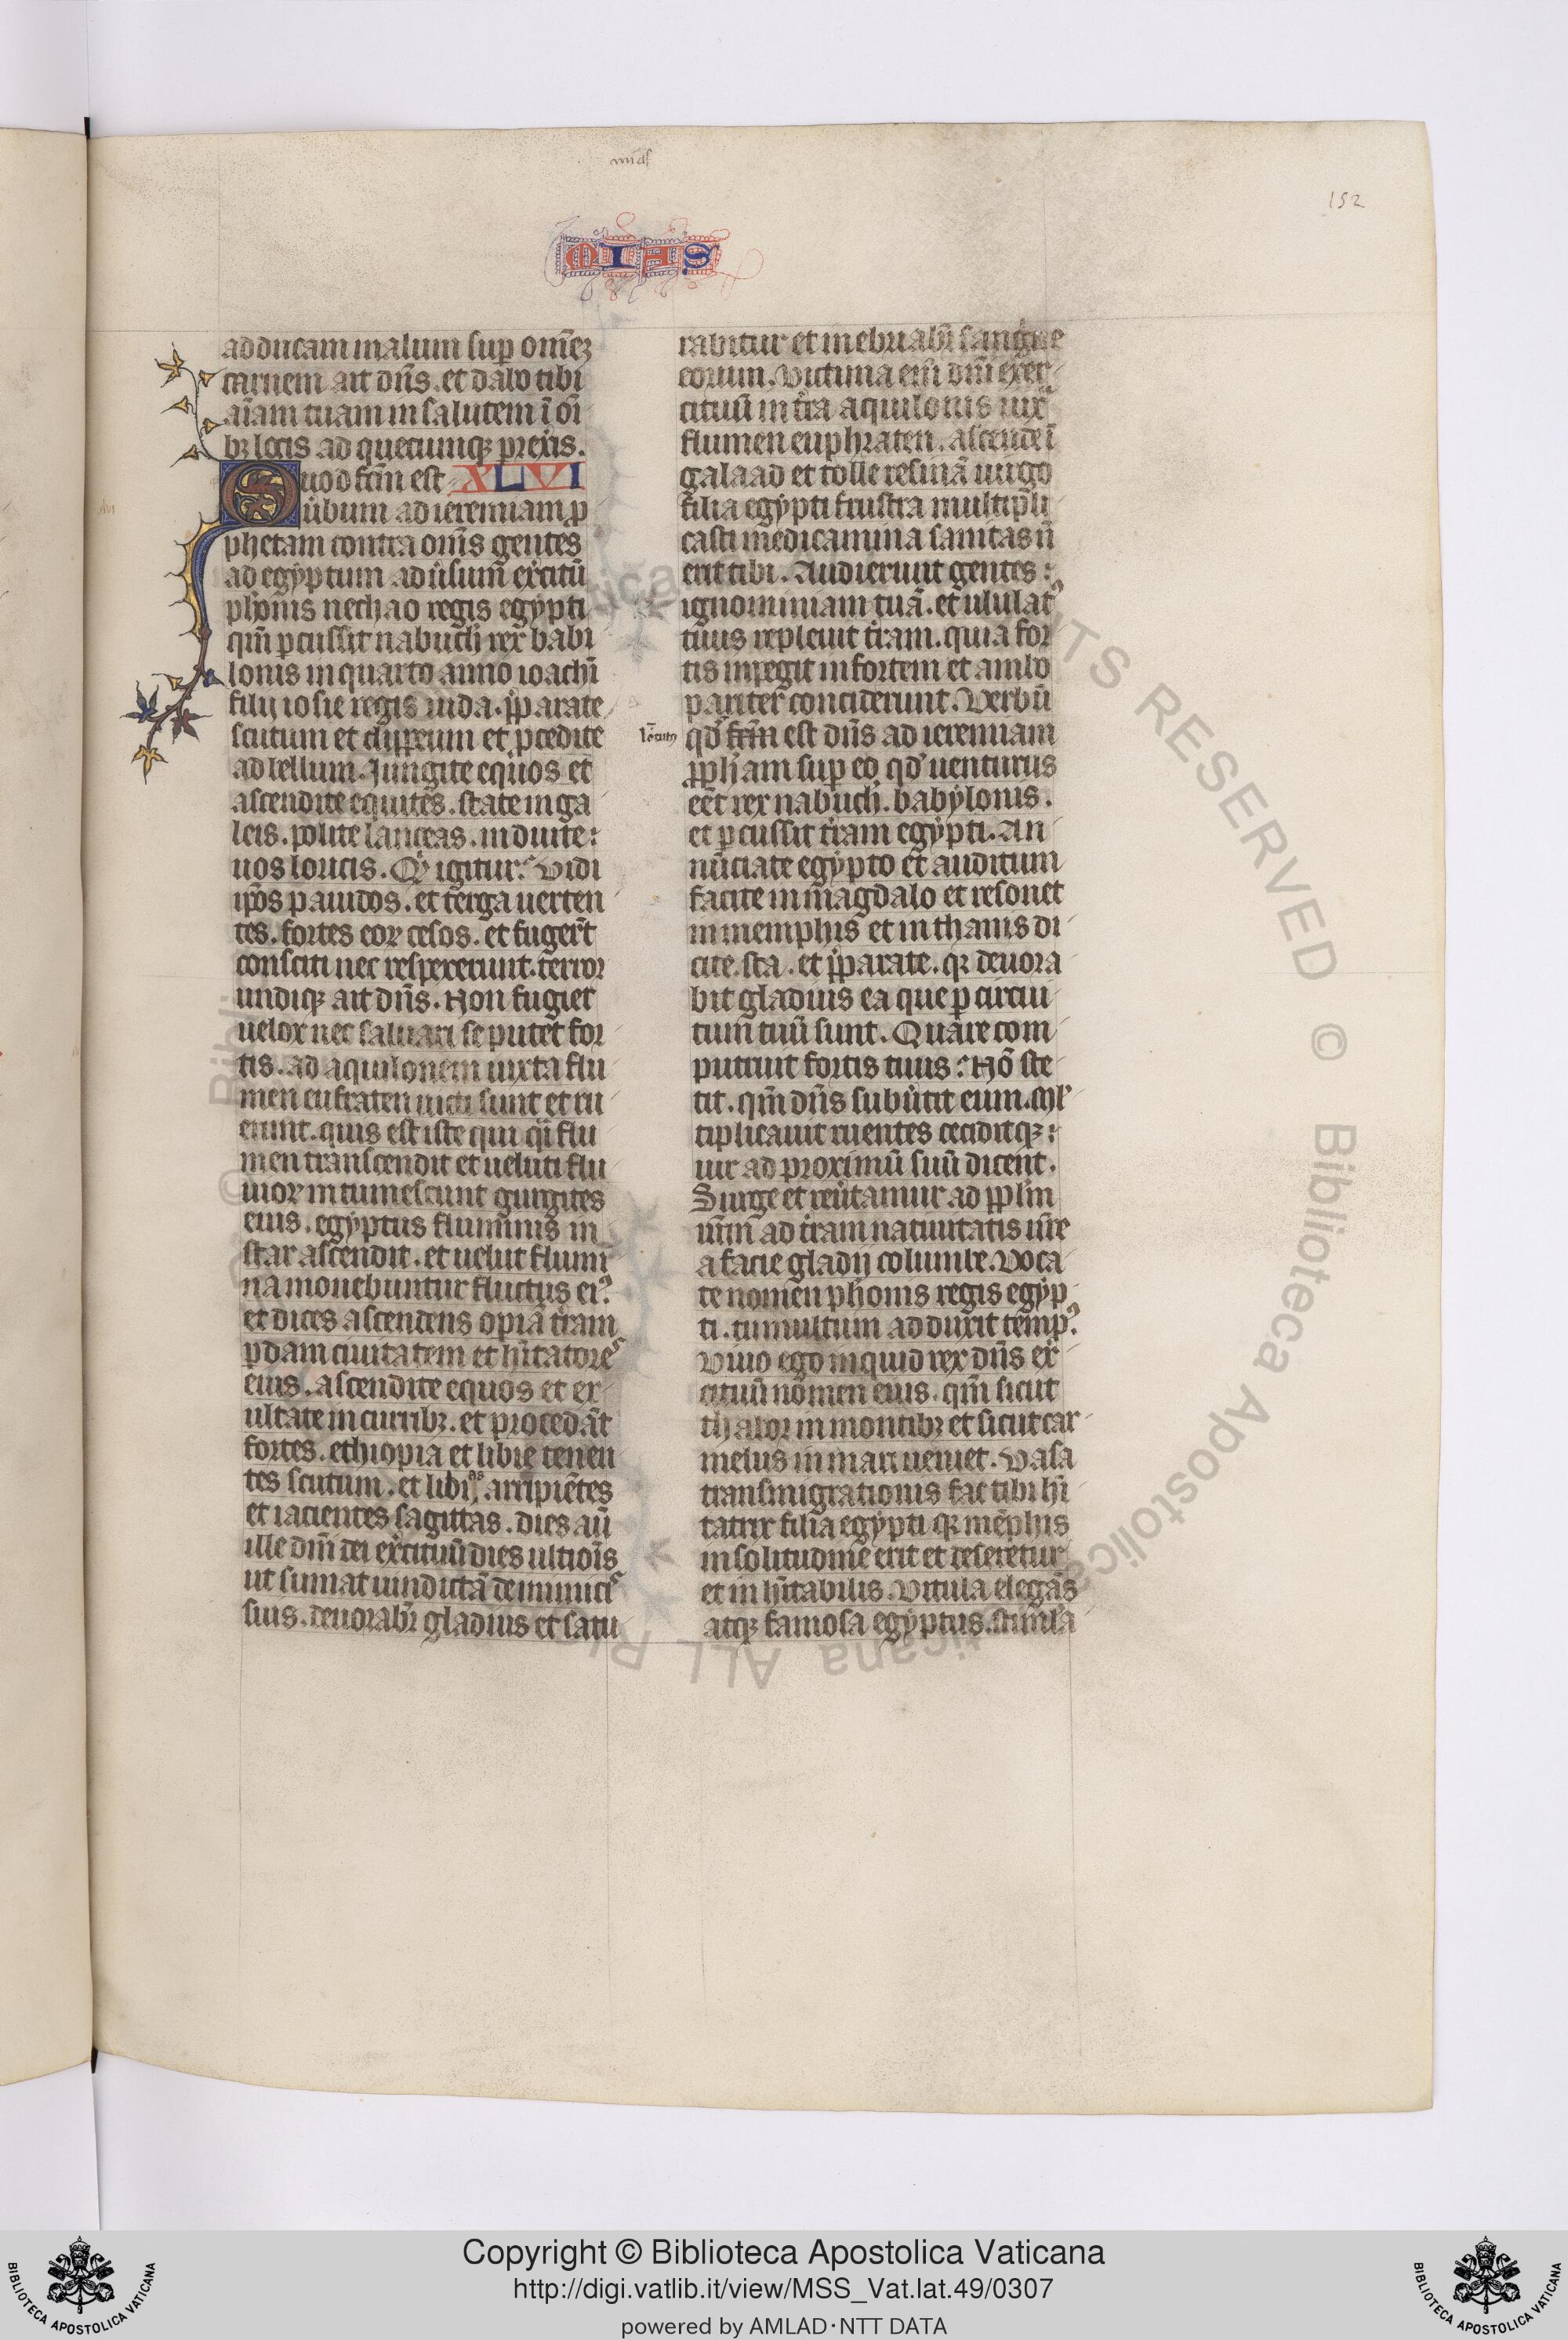 mias
152
MIAS
adducam malum sup om̄eꝫ
carnem ait dn̄s. et dabo tibi
aīam tuam in salutem ī oī
bꝫ locis ad quecumqꝫ prexis.
Quod fcm̄ est XLVI
u̇bum ad ieremiam ꝓ
xlvi
phetam contra om̄s gentes
ad egyptum aduȧsum exċitū
phonis nechao regis egypti
qm̄ ꝑcussit nabuch̄ rex babi
lonis in quarto anno ioachī
filij iosie regis iuda. p̄parate
scutum et clippeum et ꝓcedite
ad bellum. Jungite equos et
ascendite equites. state in ga
leis. polite lanceas. induite
uos loricis. Qͥ igitur? Vidi
ip̄os pauidos. et terga uerten
tes. fortes eoꝝ cesos. et fuger̄t
consciti nec respexerunt. terror
undiqꝫ ait dn̄s. Non fugiet
uelox nec saluari se putet for
tis. ad aquilonem iuxta flu
men eufraten uicti sunt et ru
erunt. quis est iste qui qͣi flu
men transcendit et ueluti flu
uioꝝ intumescunt gurgites
eius. egyptus fluminis in
star ascendit. et uelut flumī
na mouebuntur fluctus eiꝰ
et dices ascendens opiā ṫram
ꝑdam ciuitatem et hītatores
eius. ascendite equos et ex
ultate in curribꝫ. et procedāt
fortes. ethiopia et libie tenen
tes scutum. et libias arripiētes
et iacientes sagittas. dies aū
ille dn̄i dei exċituū dies ultiōis
ut sumat uindictā de inimicis
suis. deuorabit̄ gladius et satu
rabitur et inebriabit̄ sanguine
eorum. Victima eni dn̄i exer
cituū in ṫra aquilonis iux̄
flumen euphraten. ascende ī
galaad et tolle resinā uirgo
filia egypti frustra multipli
casti medicamina sanitas n̄
erit tibi. Audierunt gentes
ignominiam tuā. et ululatꝰ
tuus repleuit ṫram. quia for
tis inpegit in fortem et ambo
pariter conciderunt. Verbū
locutꝰ
qd̄ fcm̄ est dn̄s ad ieremiam
ꝓph̄am sup eo qd̄ uenturus
eēt rex nabuch̄. babylonis.
et ꝑcussit ṫram egypti. An
nūciate egypto et auditum
facite in magdalo et resonet
in memphis et in thanis di
cite. sta. et p̄parate. qꝛ deuora
bit gladius ea que ꝑ circui
tum tuū sunt. Quare com
putruit fortis tuus? Nō ste
tit. qm̄ dn̄s subu̇tit eum. Ml̄
tiplicauit ruentes ceciditqꝫ
uir ad proximū suū dicent.
Surge et reu̇tamur ad ppl̄m
nr̄m ad ṫram natiuitatis nr̄e
a facie gladij columbe. Voca
te nomen phonis regis egyp
ti. tumultum adduxit tempꝰ
Viuo ego inquid rex dn̄s ex̄
cituū nomen eius. qm̄ sicut
thabor in montibꝫ et sicut car
melus in mari ueniet. Vasa
transmigrationis fac tibi hī
tatrix filia egypti qꝛ mēphis
in solitudinē erit et deseretur
et inhītabilis. Vitula elegās
atqꝫ famosa egyptus. stimla
Copyright © Biblioteca Apostolica Vaticana
http://digi.vatlib.it/view/MSS_Vat.lat.49/0307
powered by AMLAD·NTT DATA
BIBLIOTECA APOSTOLICA VATICANA
BIBLIOTECA APOSTOLICA VATICANA